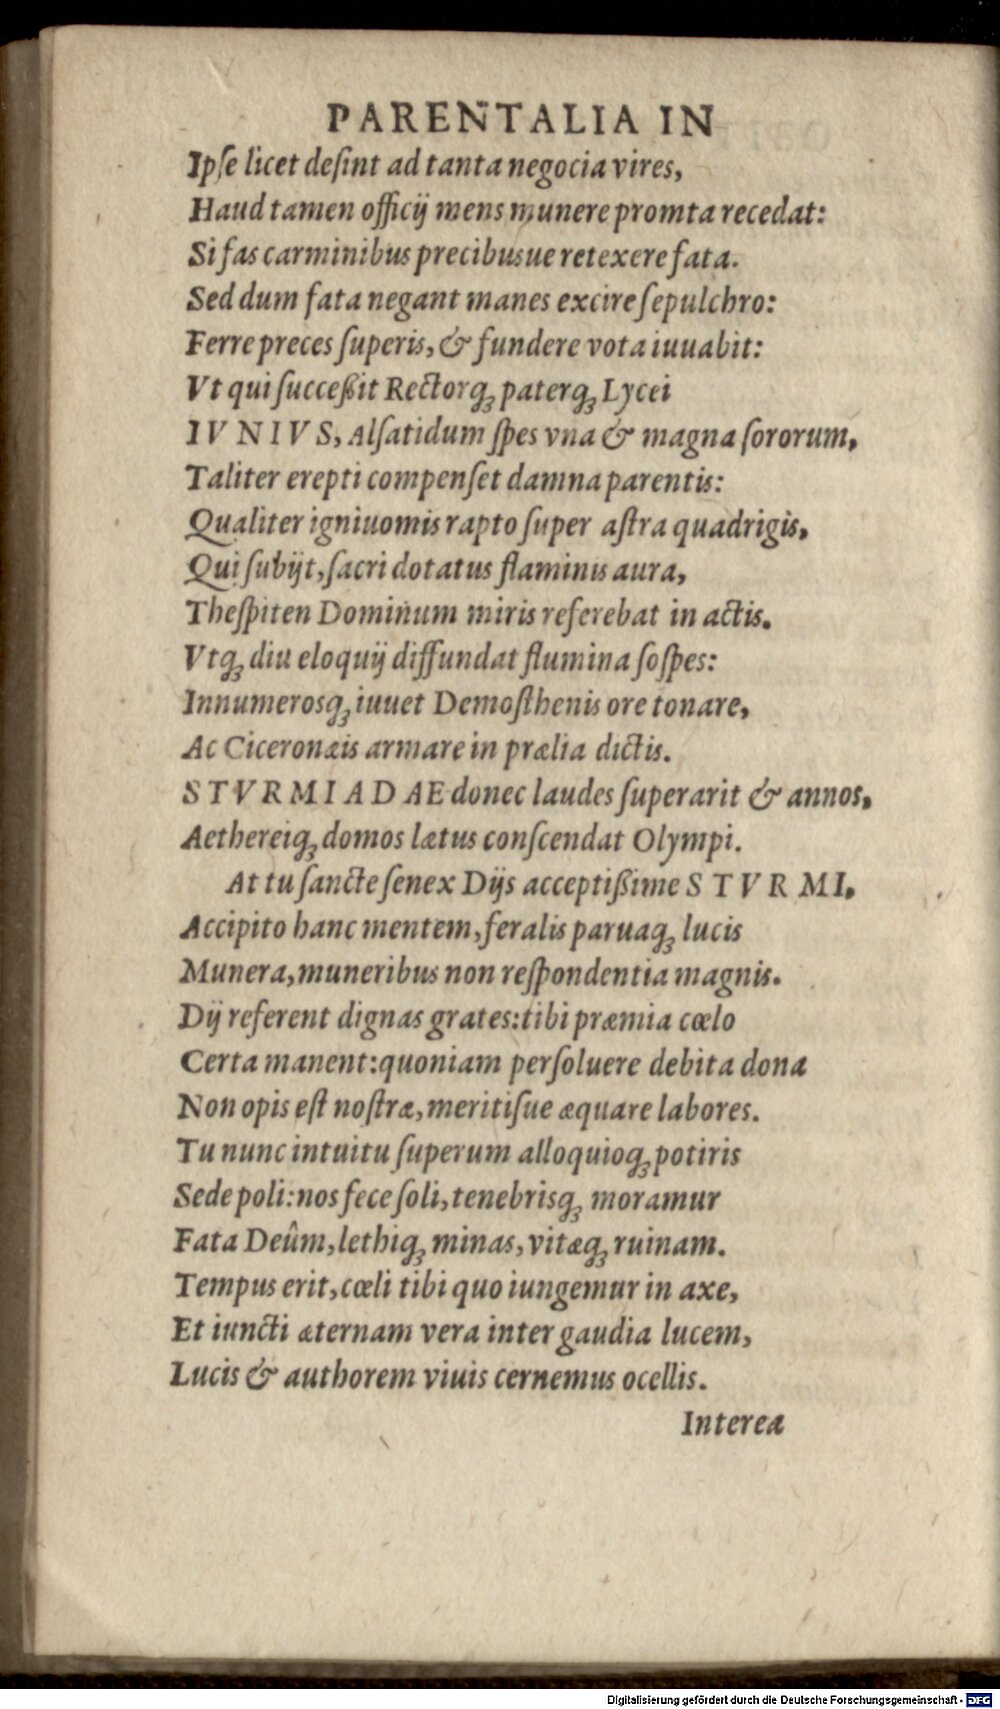 PARENTALIA IN
Ipſe licet deſint ad tanta negocia vires,
Haud tamen officij mens munere promta recedat:
Si fas carminibus precibusue retexere fata.
Sed dum fata negant manes excire ſepulchro:
Ferre preces ſuperis, & fundere vota iuuabit:
Vt qui ſucceßit Rectorq́ꝫ paterq́ꝫ Lycei
IVNIVS, Alſatidum ſpes vna & magna ſororum,
Taliter erepti compenſet damna parentis:
Qualiter igniuomis rapto ſuper aſtra quadrigis,
Qui ſubijt, ſacri dotatus flaminis aura,
Theſpiten Dominum miris referebat in actis.
Vtqꝫ diu eloquij diffundat flumina ſoſpes:
Innumerosqꝫ iuuet Demoſthenis ore tonare,
Ac Ciceronæis armare in prælia dictis.
STVRMIADAE donec laudes ſuperarit & annos,
Aethereiqꝫ domos lætus conſcendat Olympi.
At tu ſancte ſenex Dijs acceptißime STVRMI,
Accipito hanc mentem, feralis paruaqꝫ lucis
Munera, muneribus non reſpondentia magnis.
Dij referent dignas grates: tibi præmia cœlo
Certa manent: quoniam perſoluere debita dona
Non opis eſt noſtræ, meritiſue æquare labores.
Tu nunc intuitu ſuperum alloquioqꝫ potiris
Sede poli: nos fece ſoli, tenebrisqꝫ moramur
Fata Deûm, lethiqꝫ minas, vitæqꝫ ruinam.
Tempus erit, cœli tibi quo iungemur in axe,
Et iuncti æternam vera inter gaudia lucem,
Lucis & authorem viuis cernemus ocellis.
Interea
Digitalisierung gefördert durch die Deutsche Forschungsgemeinschaft - DFG